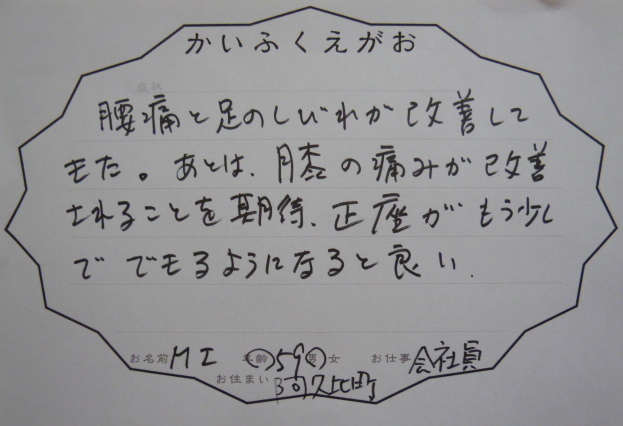 かいふくえがお
症状
腰痛と足のしびれが改善して
きた。あとは、膝の痛みが改善
されることを期待、正座がもう少し
でできるようになると良い.
お名前 MI 年齢 59 男 女 お仕事 会社員
お住まい 阿久比町